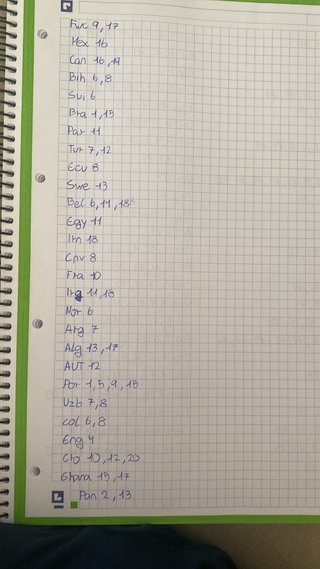 Fwc 9,17
Mex 16
Can 16,19
Bih 6,8
Sui 6
Bra 1,15
Par 11
Tur 7,12
Ecu 8
Swe 13
Bel 6,11,18
Egy 11
Irn 18
Cpv 8
Fra 10
Irq 11,18
Nor 6
Arg 7
Alg 13,17
AUT 12
Por 1,5,9,15
Uzb 7,8
Col 6,8
Eng 4
Cro 10,12,20
Ghana 15,17
Pan 2,13